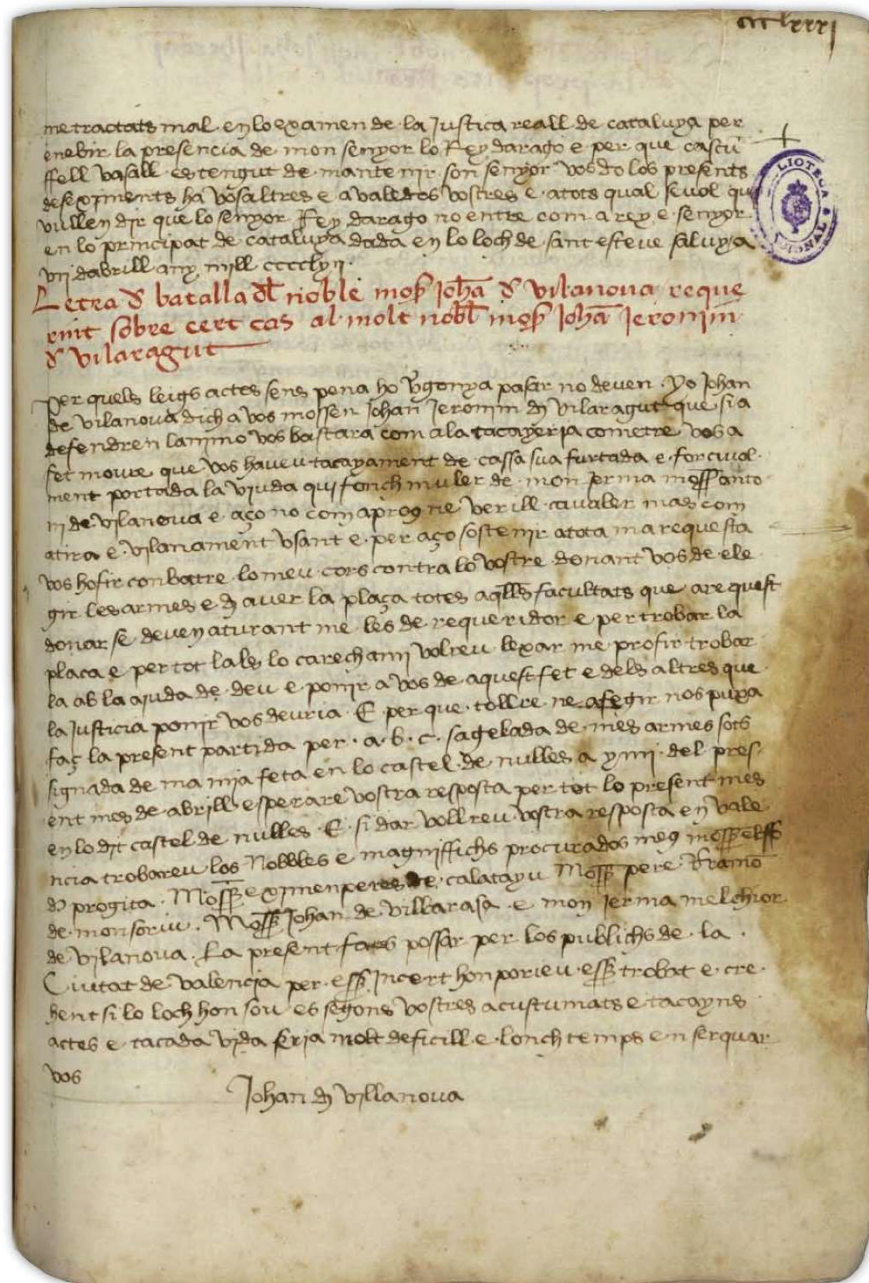 ccclxxxj
me tractats mal en lo examen de la Justicia reall de cataluya per
enebir la presencia de mon senyor lo Rey darago e per que cascu
ffell vasall es tengut de mantenir son senyor vos do los presents
deseximents ha vosaltres e avaledos vostres e atots qual sevol que
vullen dir que lo senyor Rey darago no entre com a rey e senyor
en lo principat de cataluya dada en lo loch de sant esteve saluya
vij dabrill any mill cccclxij
Letra d batalla dl noble mosḡ Johā d vilanova reque
rint sobre cert cas al molt nobl mosḡ Johā Jeronim
d vilaragut
Per quels leigs actes sens pena ho v̄gonya pasar no deven. Yo Johan
de vilanova dich a vos mossen Johan Jeronim d vilaragut que si a
defendre n lanimo vos bastara com ala tacayeria cometre vos a
fet moure que vos haveu tacayament de cassa sua furtada e forcivol
ment portada la viuda qui fonch muler de mon jerma mosḡ anto
ni de vilanova e aço no com a prog ne verill cavaler mas com
atira e vilanament usant e per aço sostenir atota ma requesta
vos hofir conbatre lo meu cors contra lo vostre donant vos de ele
gir les armes e d aver la plaça totes aqlls facultats que a request
donar se deven aturant me les de requeridor e per trobar la
placa e per tot lals lo carech ami volreu lexar me profir trobar
la ab la ajuda de deu e ponir a vos de aquest fet e dels altres que
la justicia ponir vos deuria. E per que tollre ne afegir nos puxa
faç la present partida per .a.b.c. sagelada de mes armes sots
signada de ma mia feta en lo castel de nulles a xiiii del pres
ent mes de abrill esperare vostra resposta per tot lo present mes
en lo dit castel de nulles. E si dar vollreu vostra resposta en vale
ncia trobareu los Nobbles e magniffichs procurados meg mosḡ elfs
d progita. Mosḡ eximenperes de calatayu Mosḡ pere Ramō
de monsoriu. Mosḡ Johan de villarasa e mon jerma melchior
de vilanova. La present fas possar per los publichs de la
Ciutat de valencia per esser Incert hon porieu esser trobat e cre
hent si lo loch hon sou es segons vostres acustumats e tacayns
actes e tacada vida seria molt deficill e lonch temps en serquar
vos
Johan d villanova